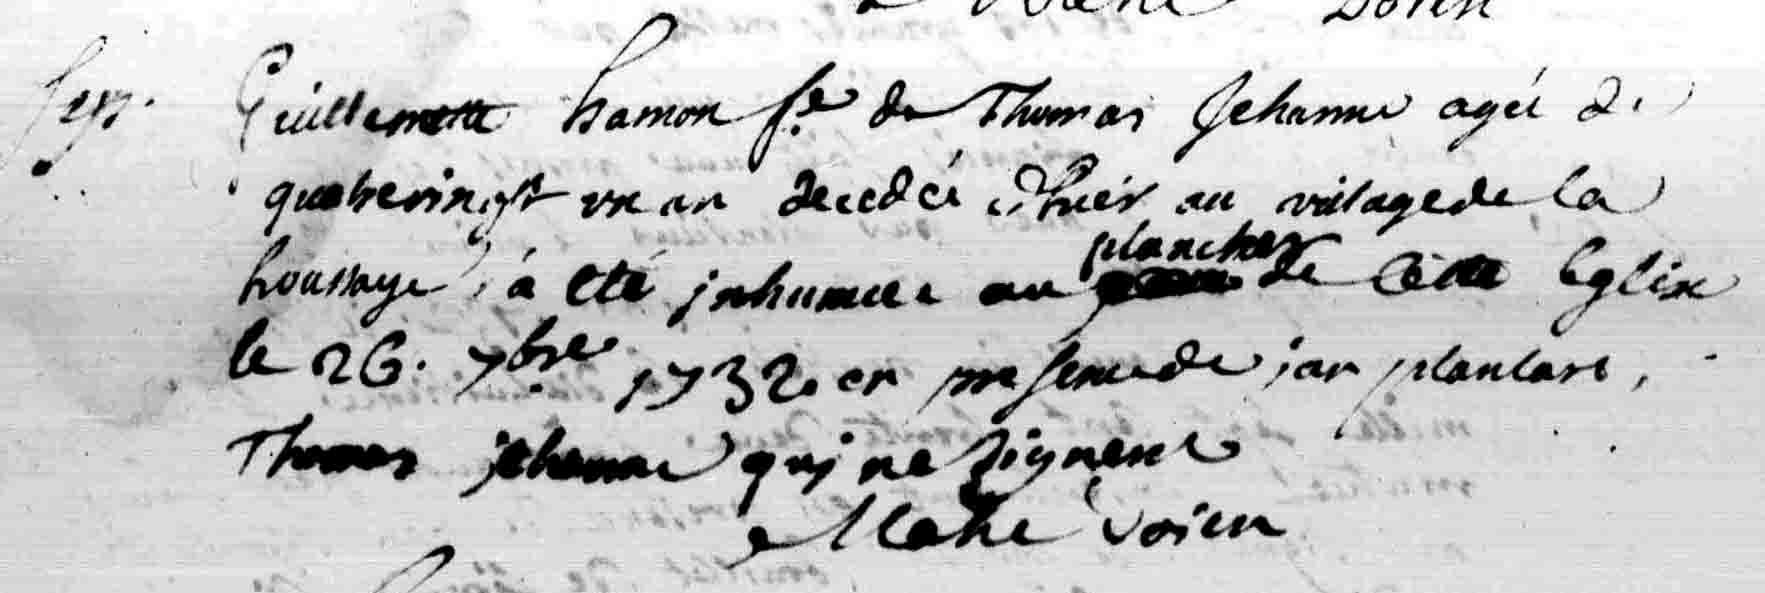 Sep.
Guillemette hamon fe de Thomas Jehanne agée de
quatrevingt un an decedée hier au vilage de la
houssaye, á eté jnhumée au plancher de cette Eglise
le 26. 7bre 1732 en presence de jan plantart,
Thomas jehanne qui ne signent
Mahé